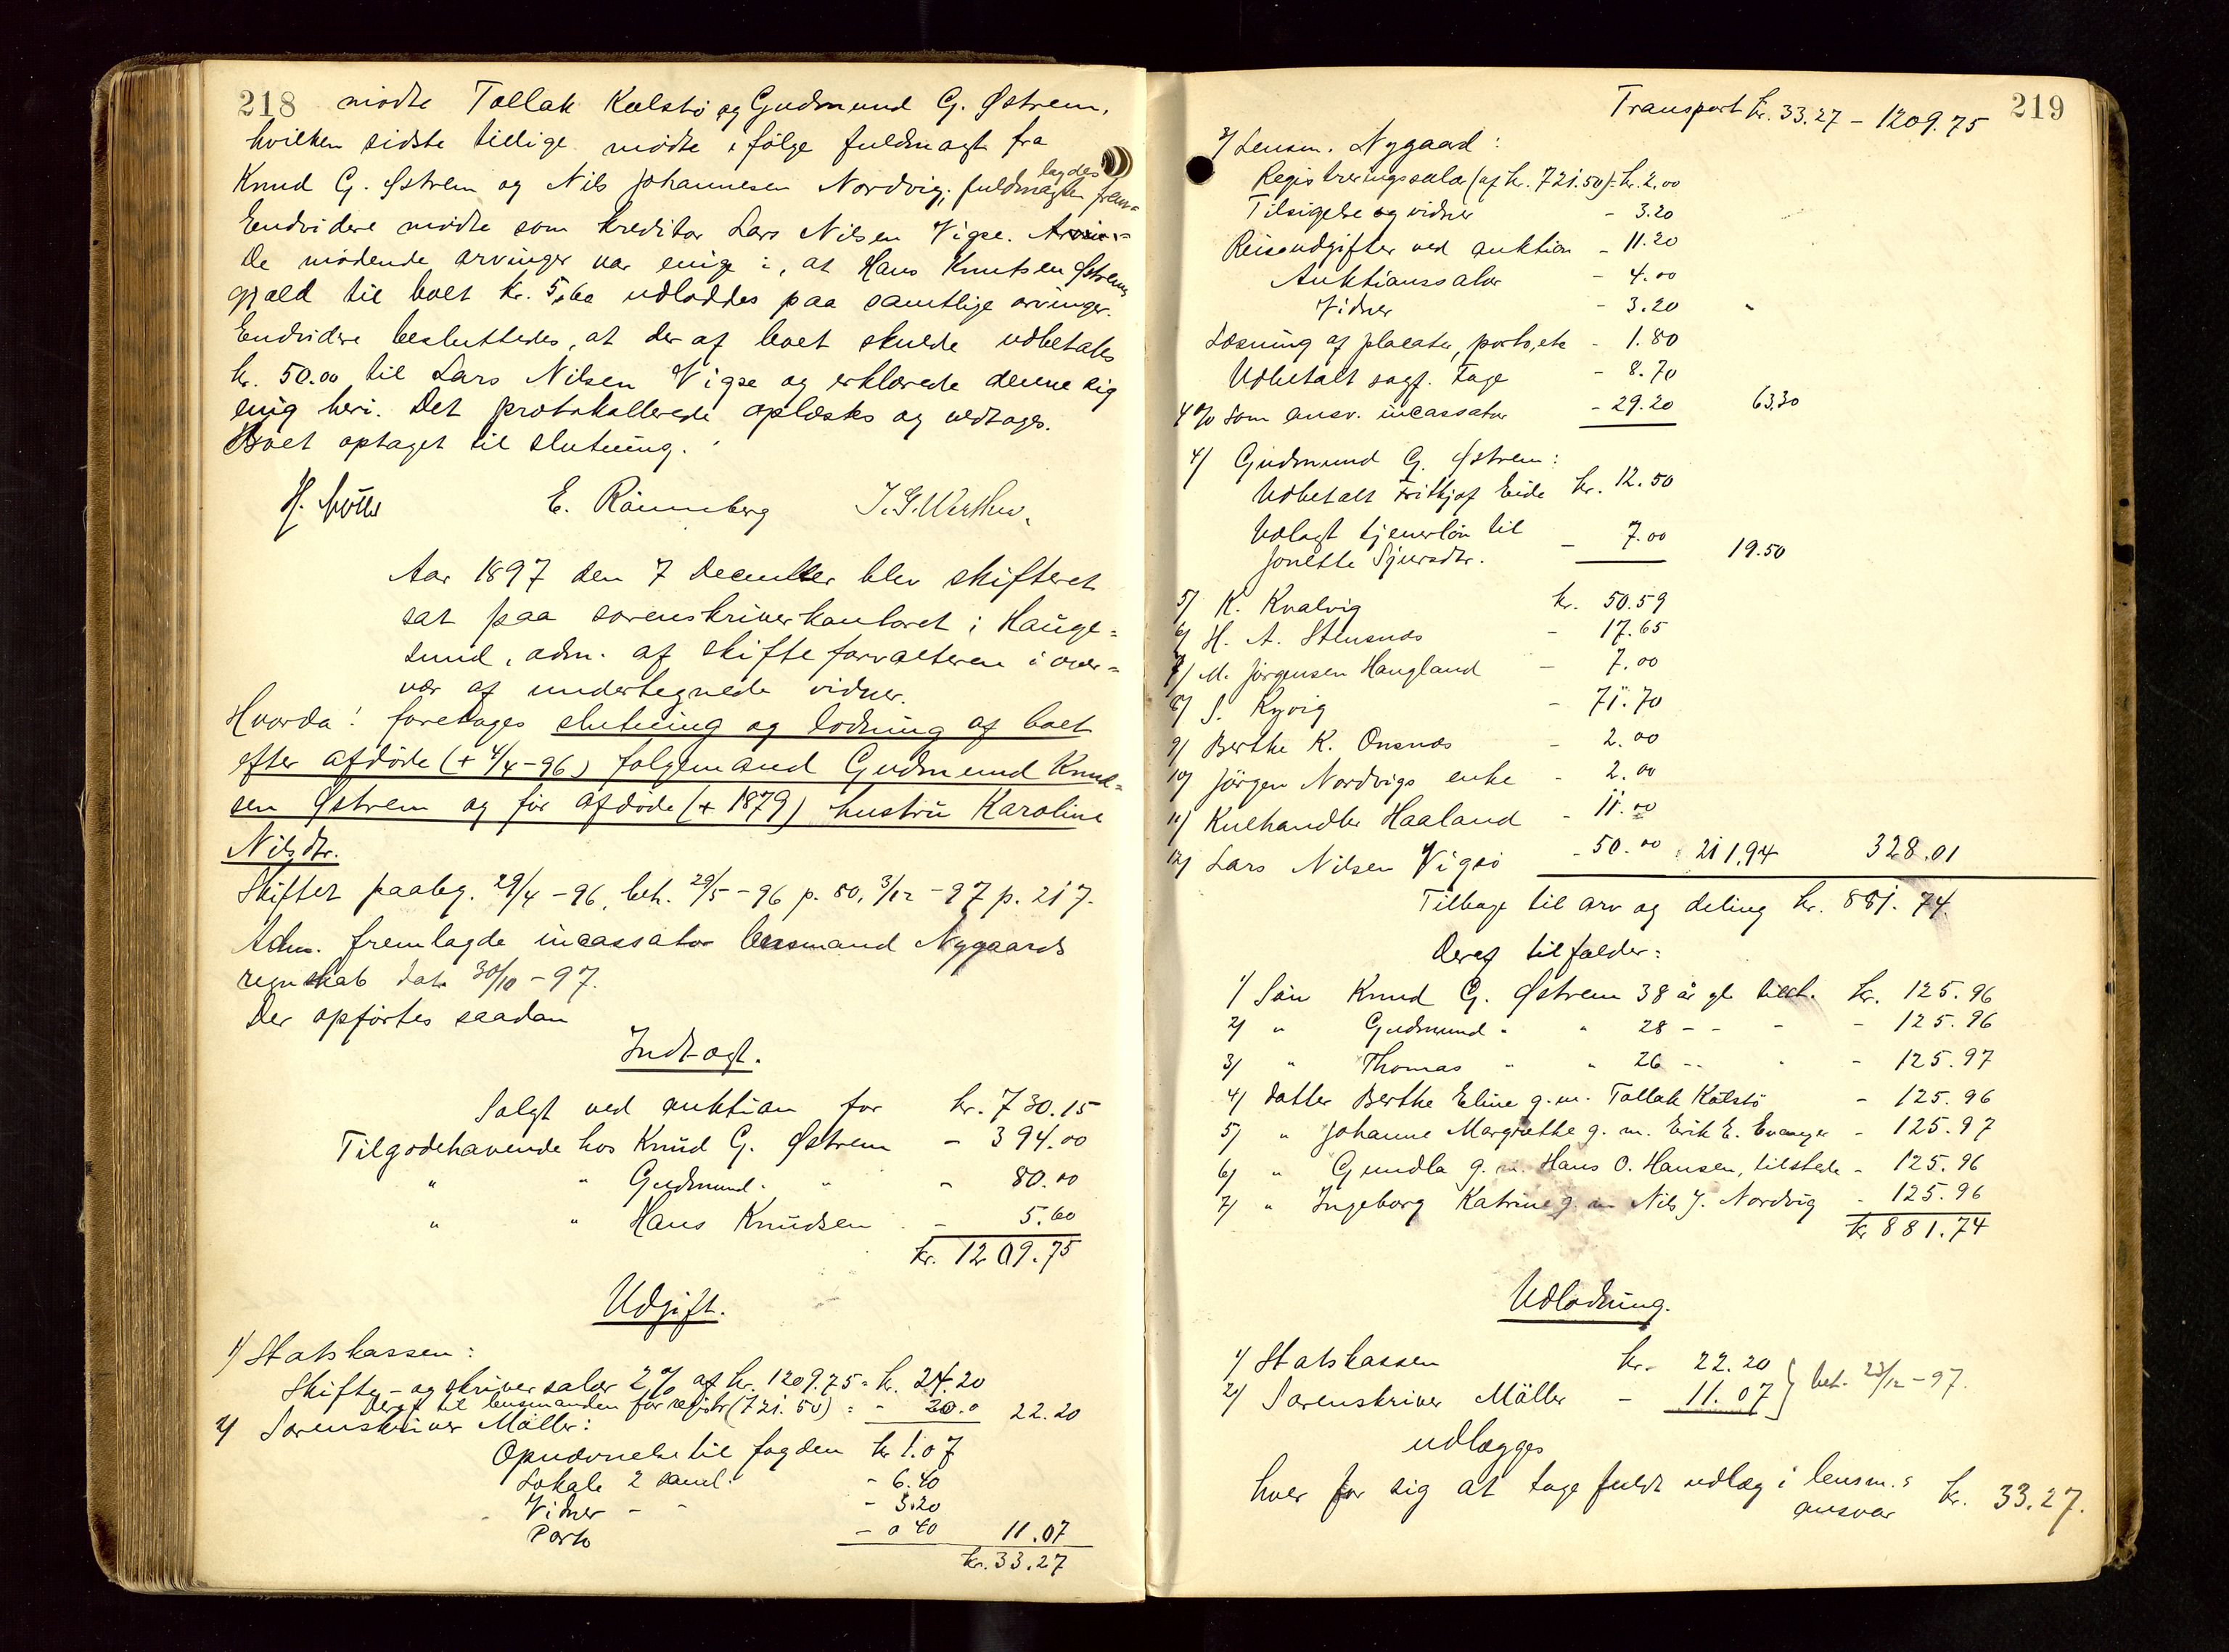 218 mødte Tollak Kolstø og Gudmund G. Østrem,
hvilken sidste tillige mødte ifølge fuldmagt fra
Knud G. Østrem og Nils Johannesen Nordvig; fuldmagten frem=
lagdes
Endvidere mødte som kreditor Lars Nilsen Vigse.
De mødende arvinger var enige i, at Hans Knutsen Østrems
gjæld til boet kr. 5,60 udloddes paa samtlige arvinger.
Endvidere besluttedes, at der af boet skulde udbetales
kr. 50.00 til Lars Nilsen Vigse og erklærede denne sig
enig heri. Det protokollerede oplæstes og vedtoges.
Boet optaget til slutning.
H. Møller E. Rønneberg
Aar 1897 den 7 december blev skifteret
sat paa sorenskriverkontoret i Hauge=
sund, adm. af skifteforvalteren i over=
vær af undertegnede vidner.
Hvorda: foretoges slutning og lodning af boet
efter afdøde (+ 4/4-96) følgemand Gudmund Knud=
sen Østrem og før afdøde (+ 1879) hustru Karoline
Nilsdtr.
Skiftet paabeg. 29/4-96, beh. 29/5-96 p. 80, 3/12-97 p. 217.
Adm. fremlagde incassator lensmand Nygaards
regnskab dat. 30/10-97.
Der opførtes saadan
Indtægt.
Solgt ved auktion for kr. 730.15
Tilgodehavende hos Knud G. Østrem - 394.00
" " Gudmund " " - 80.00
" " Hans Knudsen - 5.60
kr. 1209.75
Udgift.
1) Statskassen:
Skifte- og skriversalær 2% af kr. 1209.75 = kr. 24.20
Deraf til lensmanden for registr (721.50) = - 20.0 22.20
2) Sorenskriver Møller:
Opnævnelse til fogden kr 1.07
Lokale 2 saml. - 6.40
Vidner - - - 3.20
Porto - 0 40 11.07
kr. 33.27
219
Transport kr. 33.27 - 1209.75
3) Lensm. Nygaard:
Registreringssalær (af kr. 721.50) = kr. 2.00
Tilsigelse og vidner - 3.20
Reiseudgifter ved auktion - 11.20
Auktionssalær - 4.00
Vidner - 3.20
Læsning af placater, porto, etc - 1.80
Udbetalt sagf. Fage - 8.70
4% som ansv. incassator - 29.20 63.30
4) Gudmund G. Østrem:
Udbetalt Fritjof Eide kr. 12.50
Udlagt tjenerløn til
Jonette Sjursdtr. - 7.00 19.50
5) K. Kvalvig kr. 50.59
6) H. A. Stensnæs - 17.65
7) M. Jørgensen Haugland - 7.00
8) S. Kyvig - 71.70
9) Berthe K. Onsnæs - 2.00
10) Jørgen Nordvigs enke - 2.00
11) Kulhandler Haaland - 11.00
12) Lars Nilsen Vigsø - 50.00 211,94 328.01
Tilbage til arv og deling kr. 881.74.
Deraf tilfalder:
1) Søn Knud G. Østrem 38 år gl. tilst. kr. 125.96
2) " Gudmund " " 28 - - - - 125.96
3) " Thomas " " 26 - - - - 125.97
4) datter Berthe Eline g. m. Tollak Kolstø - 125.96
5) " Johanne Margrethe g. m. Erik E. - 125.97
6) " Gundla g. m. Hans O. Hansen, tilstede - 125.96
7) " Ingeborg Katrine g. m Nils J. Nordvig - 125.96
kr 881.74
Udlodning.
1) Statskassen kr. 22.20
2) Sorenskriver Møller - 11.07 } bet. 23/12-97.
udlægges
hver for sig at tage fuldt udlæg i lensm.s
ansvar kr. 33.27.